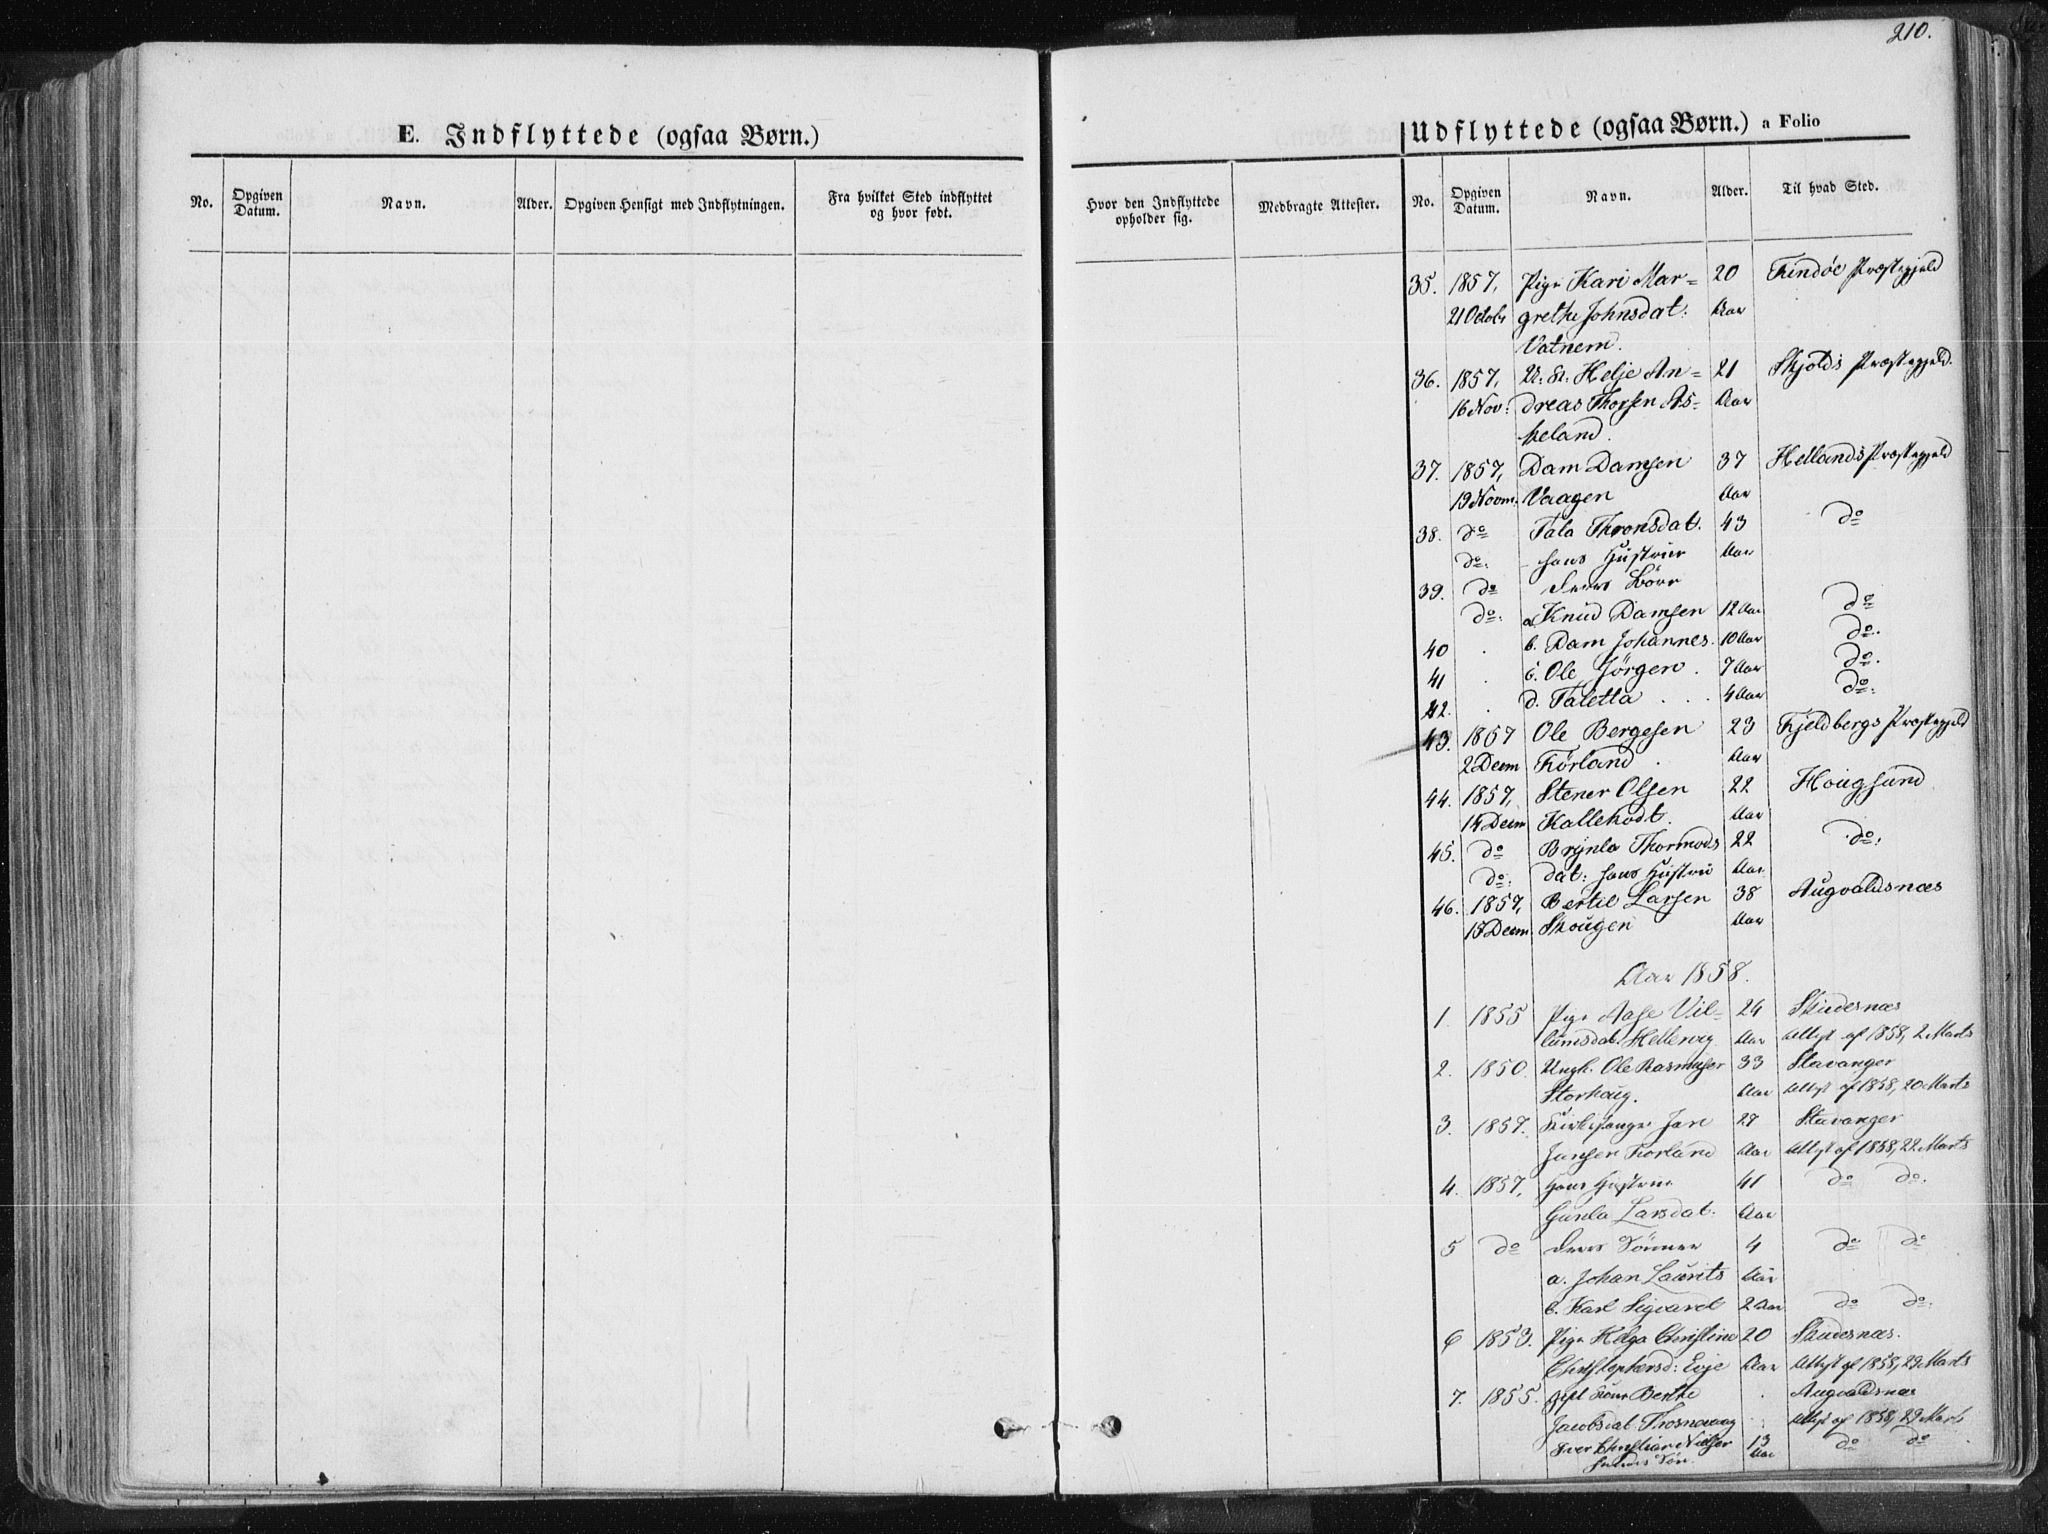 210.
E. Indflyttede (ogsaa Børn.)
No. Opgiven Datum. Navn. Alder. Opgiven Hensigt med Indflytningen. Fra hvilket Sted indflyttet og hvor født.
Udflyttede (ogsaa Børn.) a Folio
Hvor den Indflyttede opholder sig. Medbragte Attester. No. Opgiven Datum. Navn. Alder. Til hvad Sted.
35. 1857, Pige Kari Mar= 20 Findöe Præstegjeld
21 Octobr grethe Johnsdat: Aar
Vatnem.
36. 1857, U: K: Helje An= 21 Skjolds Præstegjeld.
16 Nov: dreas Thorsen As= Aar
keland.
37. 1857, Dam Damsen 37 Hellands Præstegjeld
19 Novm: Vaagen Aar
38. do Tala Thronsdat. 43 do
do: hans Hustrue Aar
39. do deres Börn
do: a. Knud Damsen 12 Aar do
40 . b. Dam Johannes. 10 Aar do.
41 . c. Ole Jörgen . 7 Aar do.
42. . d. Taletta . . . 4 Aar do:
43. 1857 Ole Bergesen 23 Fjeldbergs Præstegjeld
2 Decm Förland . Aar
44. 1857, Stener Olsen 22 Hougsund
14 Decm Kallekodt. Aar
45. do Brynla Thormods 22 do:
do: dat: hans Hustru Aar
46. 1857, Bertil Larsen 38 Augvaldsnæs
15 Decm. Skougen Aar
Aar 1858.
1. 1855 Pige Aase Vil= 24 Skudesnæs
lumsdat. Hellevig Aar Attest af 1858, 2 Marts
2. 1850. Ungk. Ole Rasmusen 33 Stavanger
Storhoug. Aar Attest af 1858, 20 Marts
3. 1857. Kirkesanger Jan 27 Stavanger
Jansen Förland Aar Attest af 1858, 22 Marts
4. 1857, Hans Hustrue 41 do do.
Gunla Larsdat: Aar
5 do deres Sönner 4 do do
a. Johan Laurits Aar
b. Karl Sigvard 2 Aar do do.
6 1853. Pige Helga Christine 20 Skudesnæs.
Christophersd: Eeje Aar Attest af 1858, 29 Marts
7. 1855. gift Kone Berthe . Augvaldsnæs
Jacobsdat. . Attest af 1858, 29 Marts
Iver Christian Nielsen 13 do do
hendes Sön. Aar